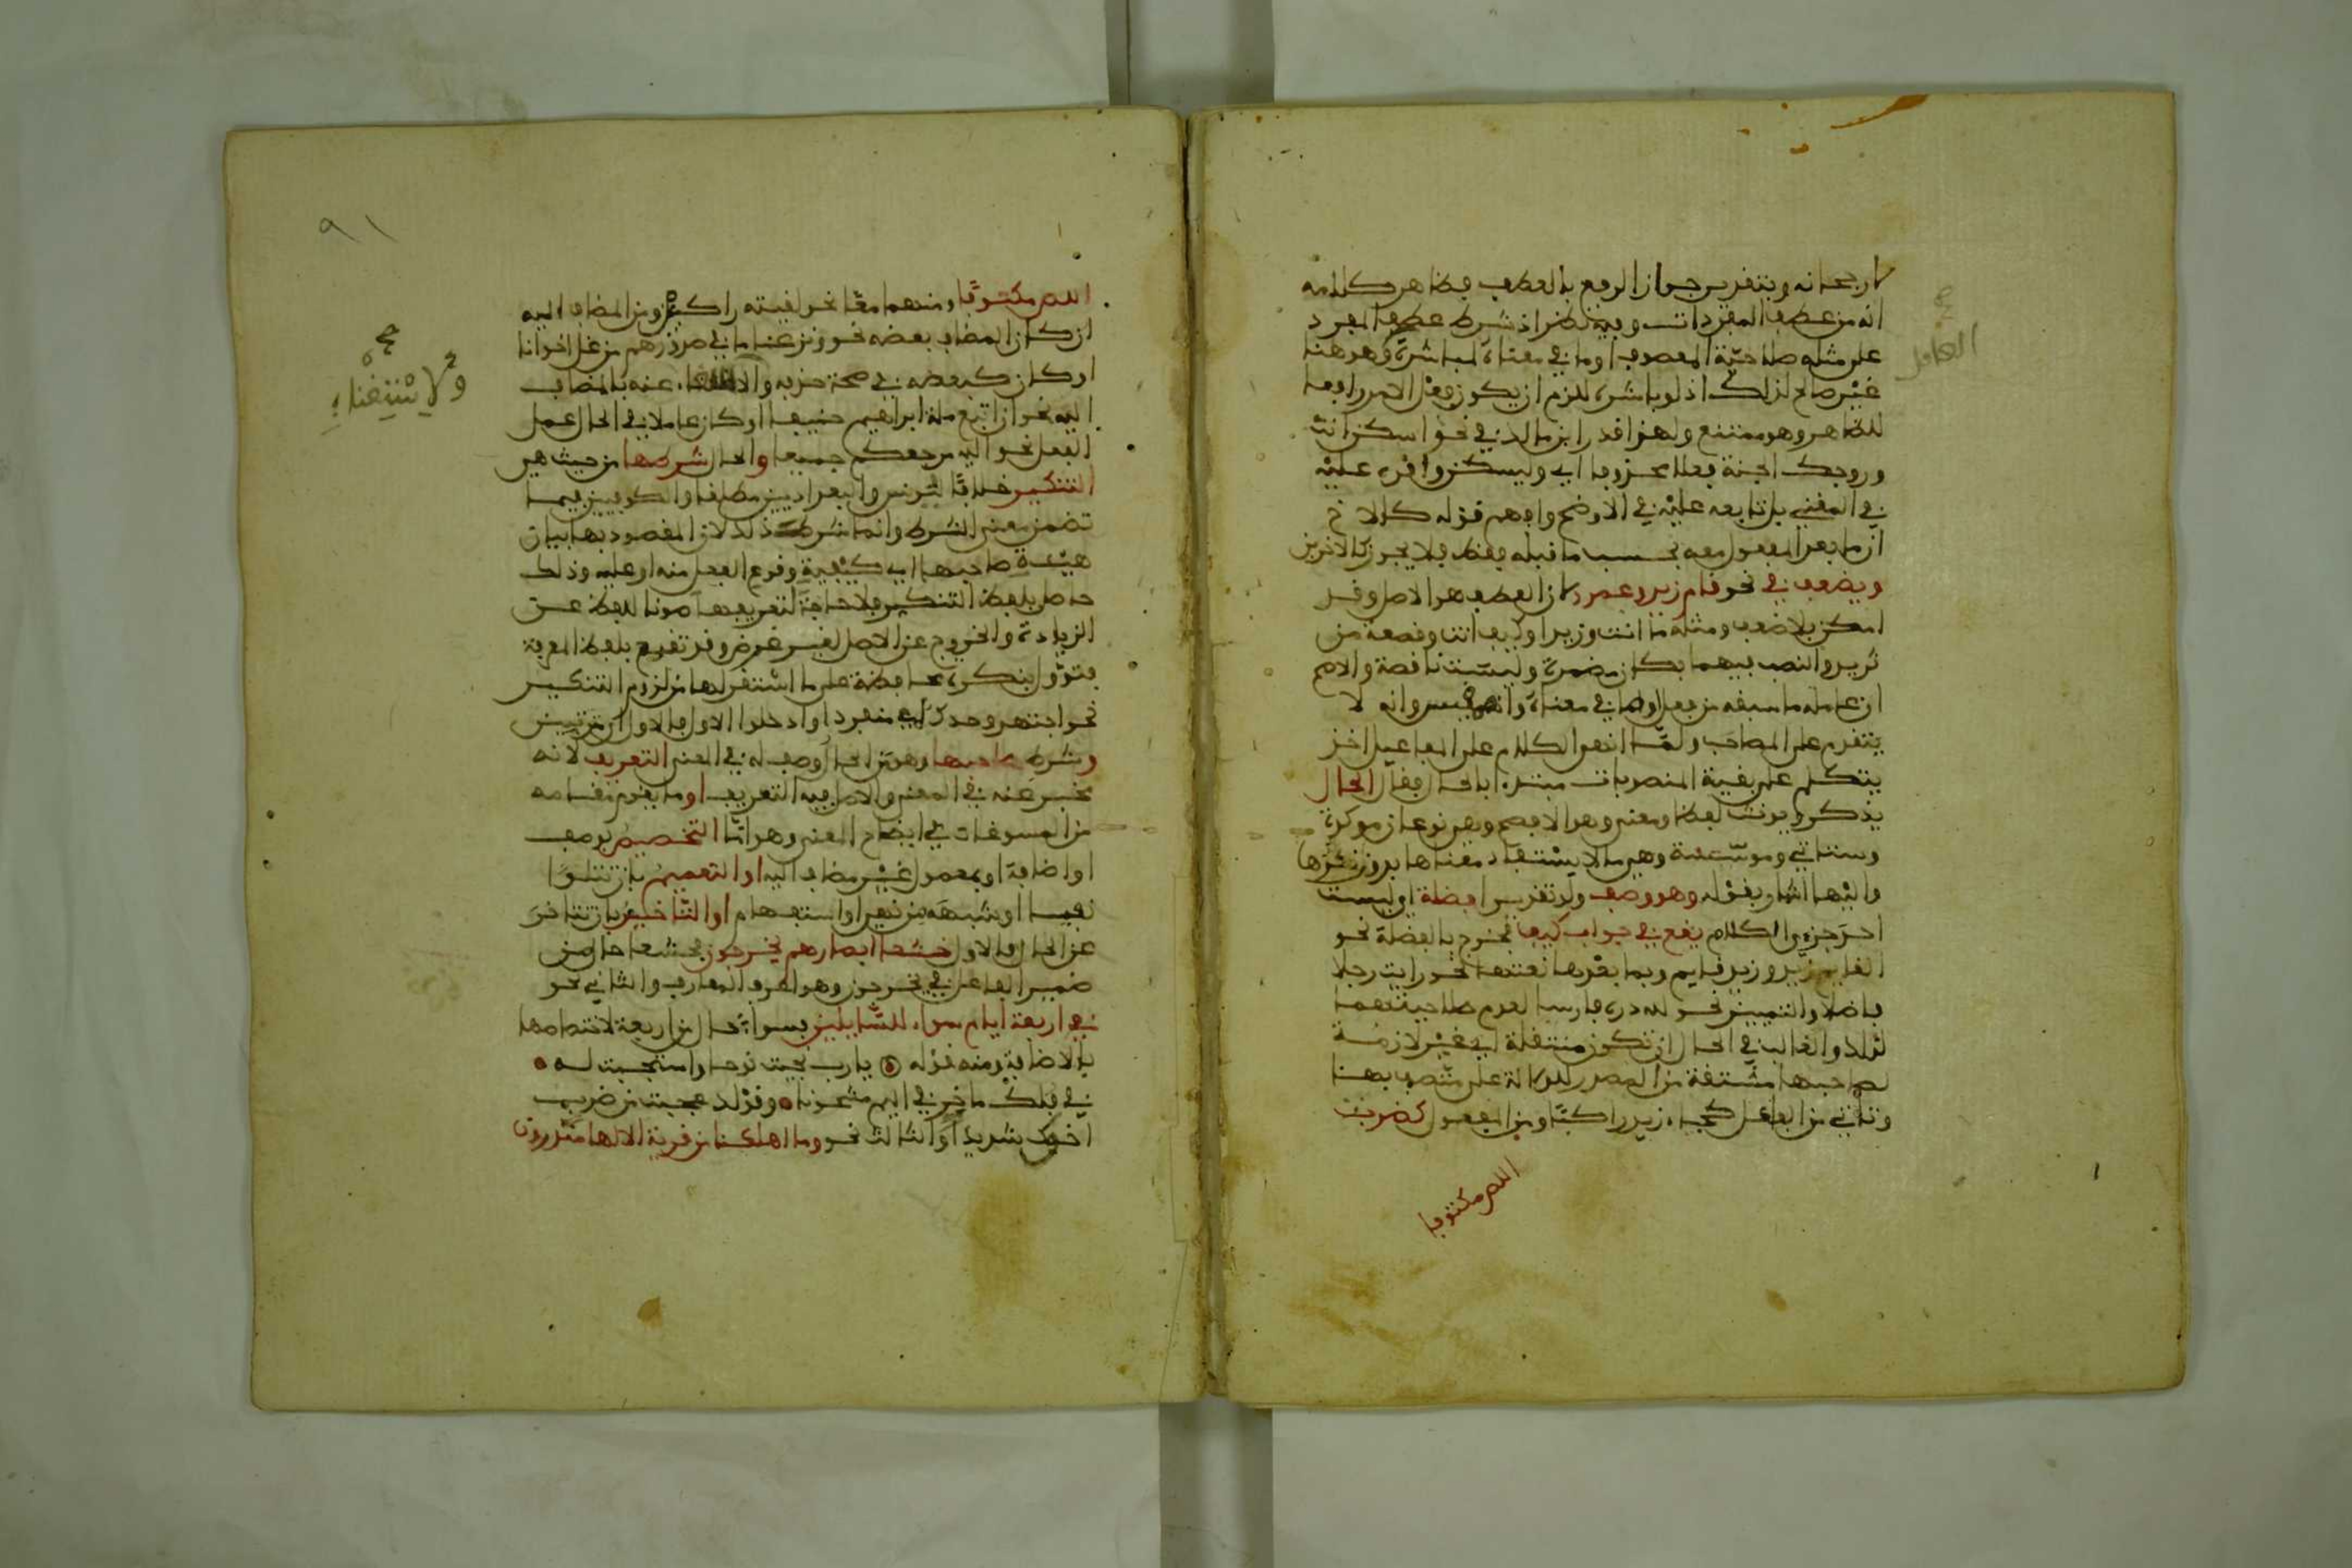 لارجحانه وبتقدير جواز الرفع بالعطف فظاهر كلامه
انه من عطف المفردات وفيه نظر اذ شرط عطف المفرد
على مثله صلاحية المعطوف او ما في معناه لمباشرة وهو هنا
العامل
غير صالح لذلك اذ لو باشره للزم ان يكون فعل الامر رافعا
للظاهر وهو ممتنع ولهذا قدر ابن مالك في نحو اسكن انت
وزوجك الجنة فعلا محذوفا اي وليسكن واقره عليه
في المغني بل تابعه عليه في الاوضح وافهم قوله كالاخ
ان ما بعد المفعول معه بحسب ما قبله فقط فلا يجوز كالاخوين
ويضعف في نحو قام زيد وعمرو لان العطف هو الاصل وقد
امكن بلا ضعف ومثله ما انت وزيدا وكيف انت وقصعة من
ثريد والنصب فيهما بكان مضمرة وليست ناقصة والاصح
ان عامله ما سبقه من فعل او ما في معناه وانه مقيس وانه لا
يتقدم على المصاحب ولما انهى الكلام على المفاعيل اخذ
يتكلم على بقية المنصوبات مبتدءا بالحال فقال الحال
يذكر ويونث لفظا ومعنى وهو الافصح وهي نوعان موكدة
وستاتي وموسسة وهي ما لا يستفاد معناها بدون ذكرها
واليها اشار بقوله وهو وصف ولو تقديرا فضلة اي ليست
احد جزءي الكلام يقع في جواب كيف فخرج بالفضلة نحو
القايم زيد وزيد قايم وبما بعدها نعتها نحو رايت رجلا
فاضلا والتمييز نحو لله دره فارسا لعدم صلاحيتهما
لذلك والغالب في الحال ان تكون منتقلة اي غير لازمة
لصاحبها مشتقة من المصدر للدلالة على متصف بها
وتاتي من الفاعل كجاء زيد راكبا ومن المفعول كضربت
اللص مكتوفا
٩١
اللص مكتوفا ومنهما معا نحو لقيته راكبين ومن المضاف اليه
ان كان المضاف بعضه نحو ونزعنا ما في صدورهم من غل اخوانا
او كان كبعضه في صحة حذفه والاستغناء عنه بالمضاف
ولاستغناء
اليه نحو ان اتبع ملة ابراهيم حنيفا او كان عاملا في الحال عمل
الفعل نحو اليه مرجعكم جميعا والحال شرطها من حيث هي
التنكير خلافا ليونس والبغداديين مطلقا والكوفيين فيما
تضمن معنى الشرط وانما شرط ذلك لان المقصود بها بيان
هيئة صاحبها اي كيفية وقوع الفعل منه او عليه وذلك
حاصل بلفظ التنكير فلا حاجة لتعريفها صونا للفظ عن
الزيادة والخروج عن الاصل لغير غرض وقد تقع بلفظ المعرفة
فتوول بنكرة محافظة على ما استقر لها من لزوم التنكير
نحو اجتهد وحدك اي منفردا وادخلوا الاول فالاول اي مترتبين
وشرط صاحبها وهو من الحال وصف له في المعنى التعريف لانه
مخبر عنه في المعنى والاصل فيه التعريف او ما يقوم مقامه
من المسوغات في ايضاح المعنى وهو اما التخصيص بوصف
او اضافة او بمعمول غير مضاف اليه او التعميم بان تتلو
نفيا او شبهه من نهي او استفهام او التاخير بان تتاخر
عن الحال فالاول خشعا ابصارهم يخرجون فخشعا حال من
ضمير الفاعل في يخرجون وهو اعرف المعارف والثاني نحو
في اربعة ايام سواء للسايلين فسواء حال من اربعة لاختصاصها
بالاضافة ومنه قوله يا رب نجيت نوحا واستجبت له
في فلك ماخر في اليم مشحونا وقولك عجبت من ضرب
اخوك شديدا والثالث نحو وما اهلكنا من قرية الا لها منذرون